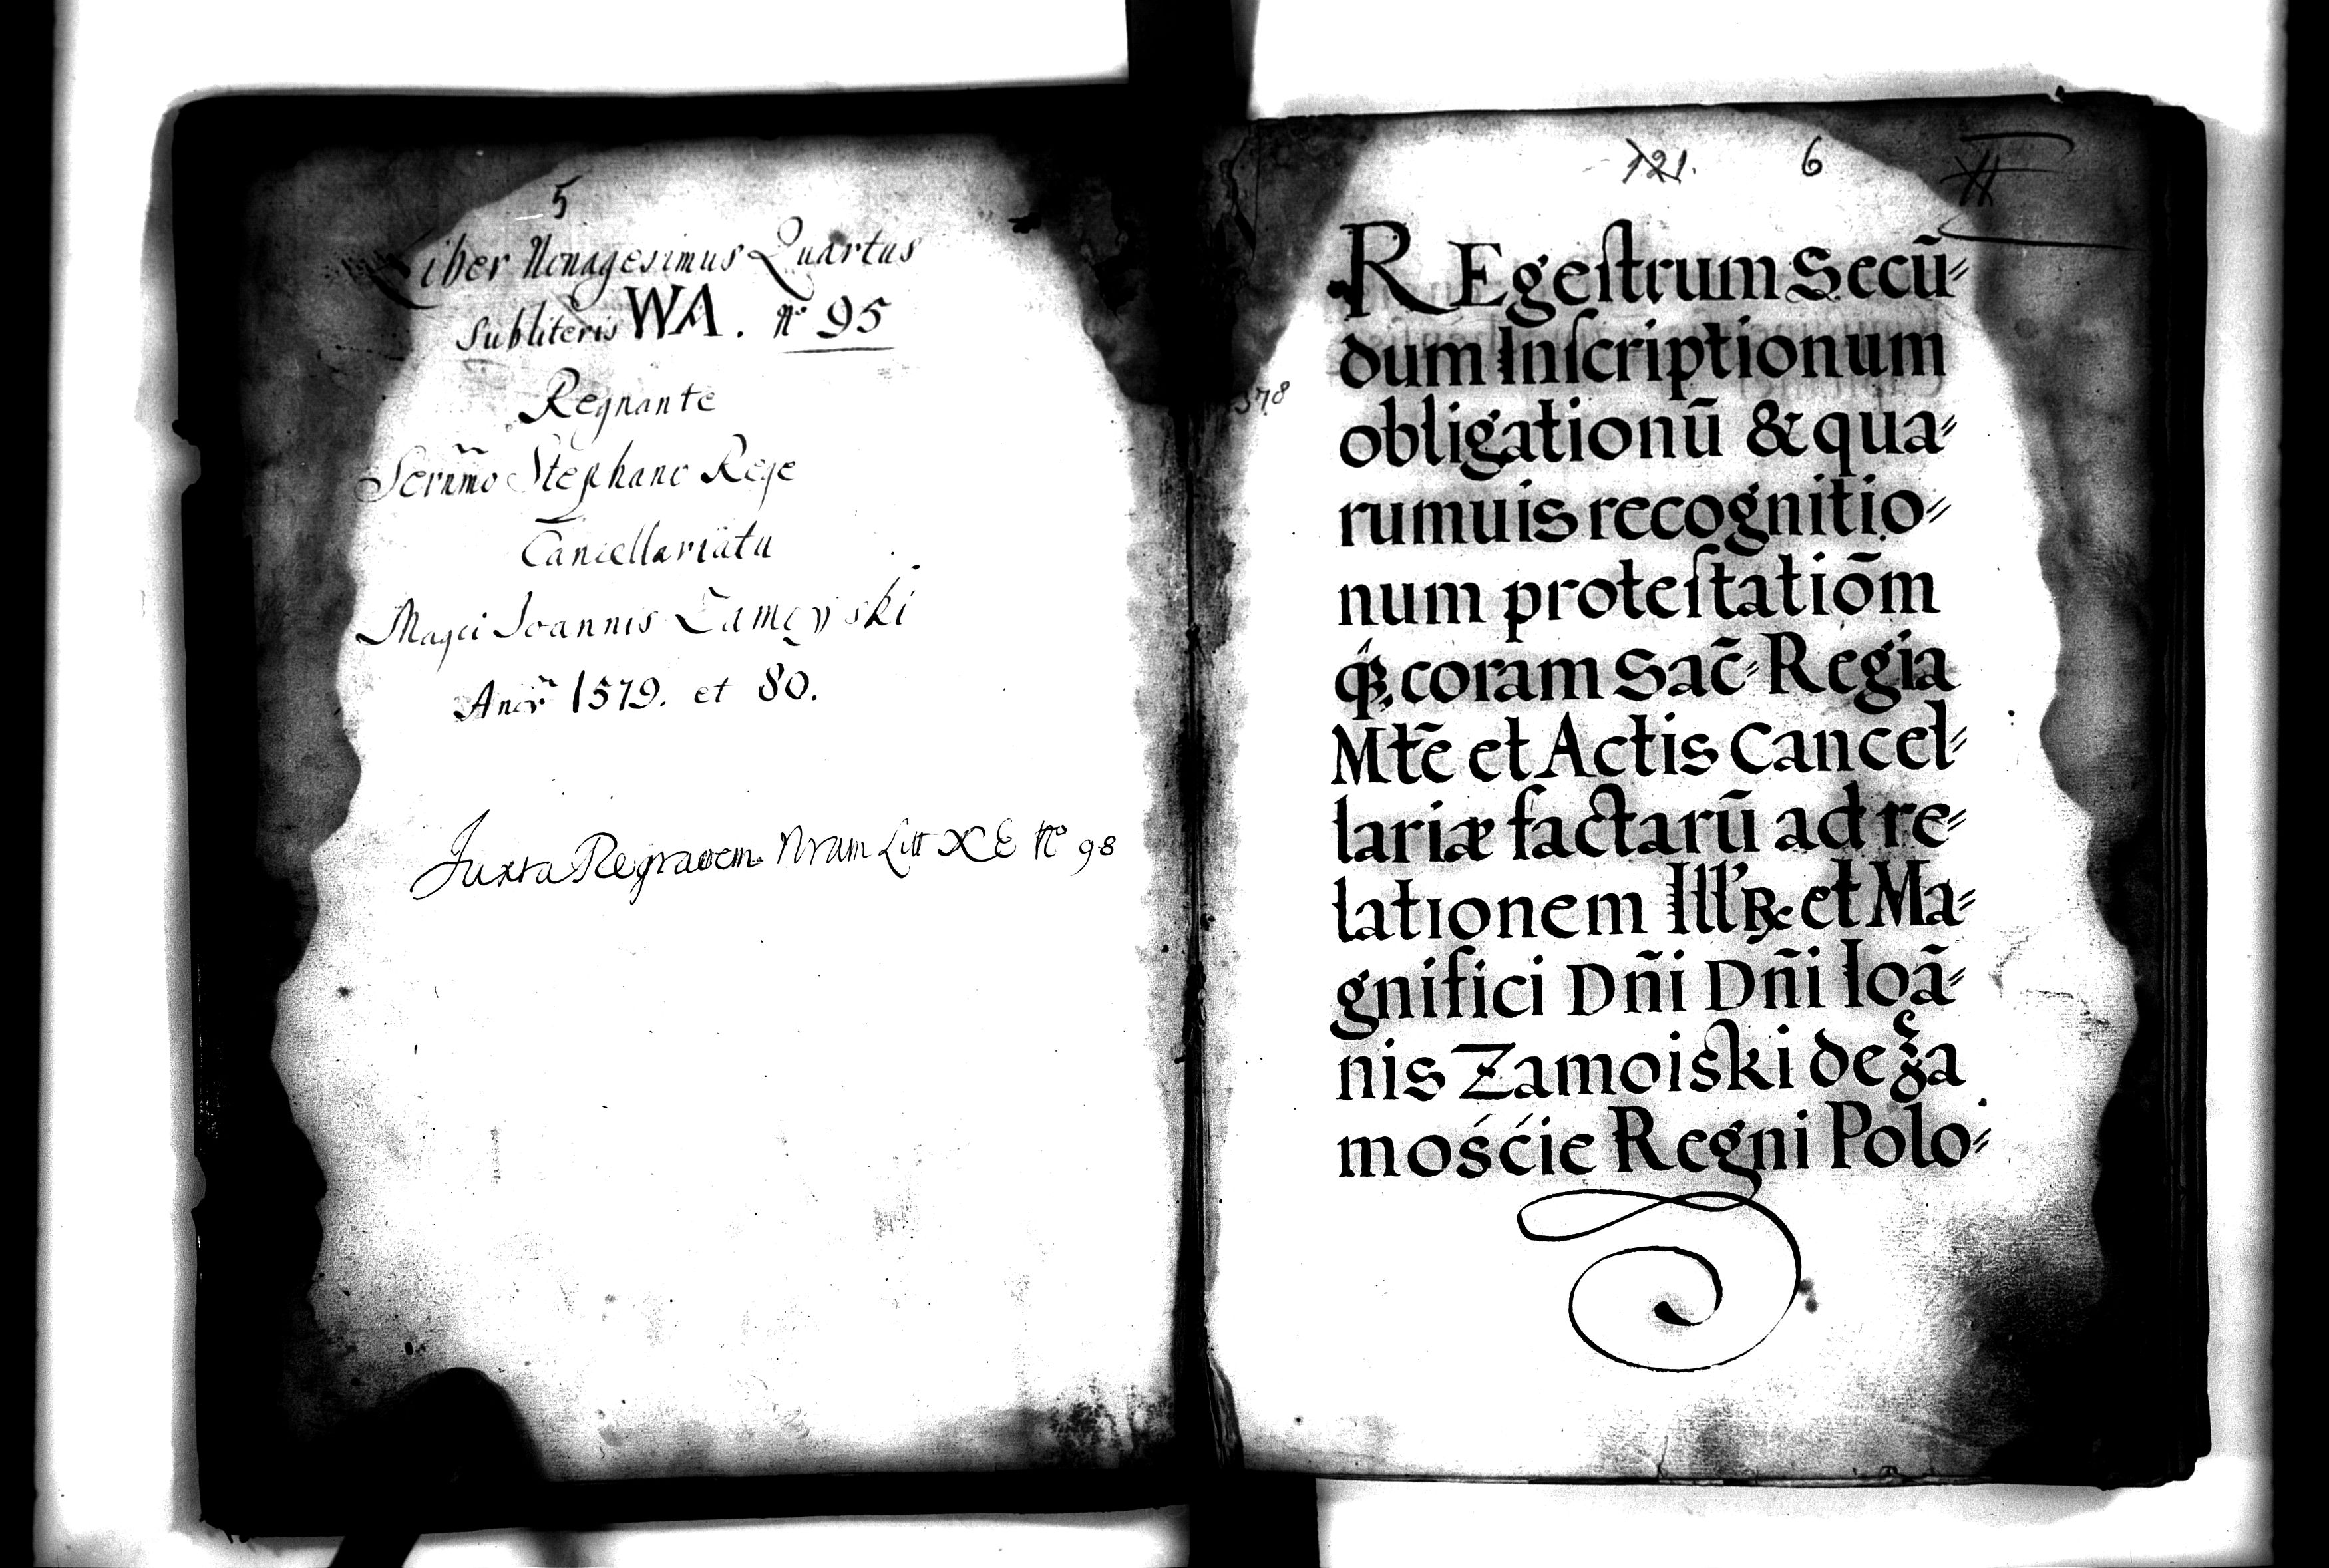 5
Liber Nonagesimus Quartus
Subliteris WA. No 95
Regnante
Sernm̃o Stephano Rege
Cancellariatu
Magci Joannis Zamoyski
1579. et 80.
Juxta Nram Litt XE No 98
121. 6
REgeſtrum Secū⸗
dum Inſcriptionum
obligationū & qua⸗
rumuis recognitio⸗
num proteſtatiōm
qꝫ coram Sac̃ Regia
Mtẽ et Actis Cancel⸗
lariæ factarū ad re⸗
lationem Ill'R et Ma⸗
gnifici Dñi Dñi Ioã⸗
nis Zamoiski de Za
mośćie Regni Polo⸗